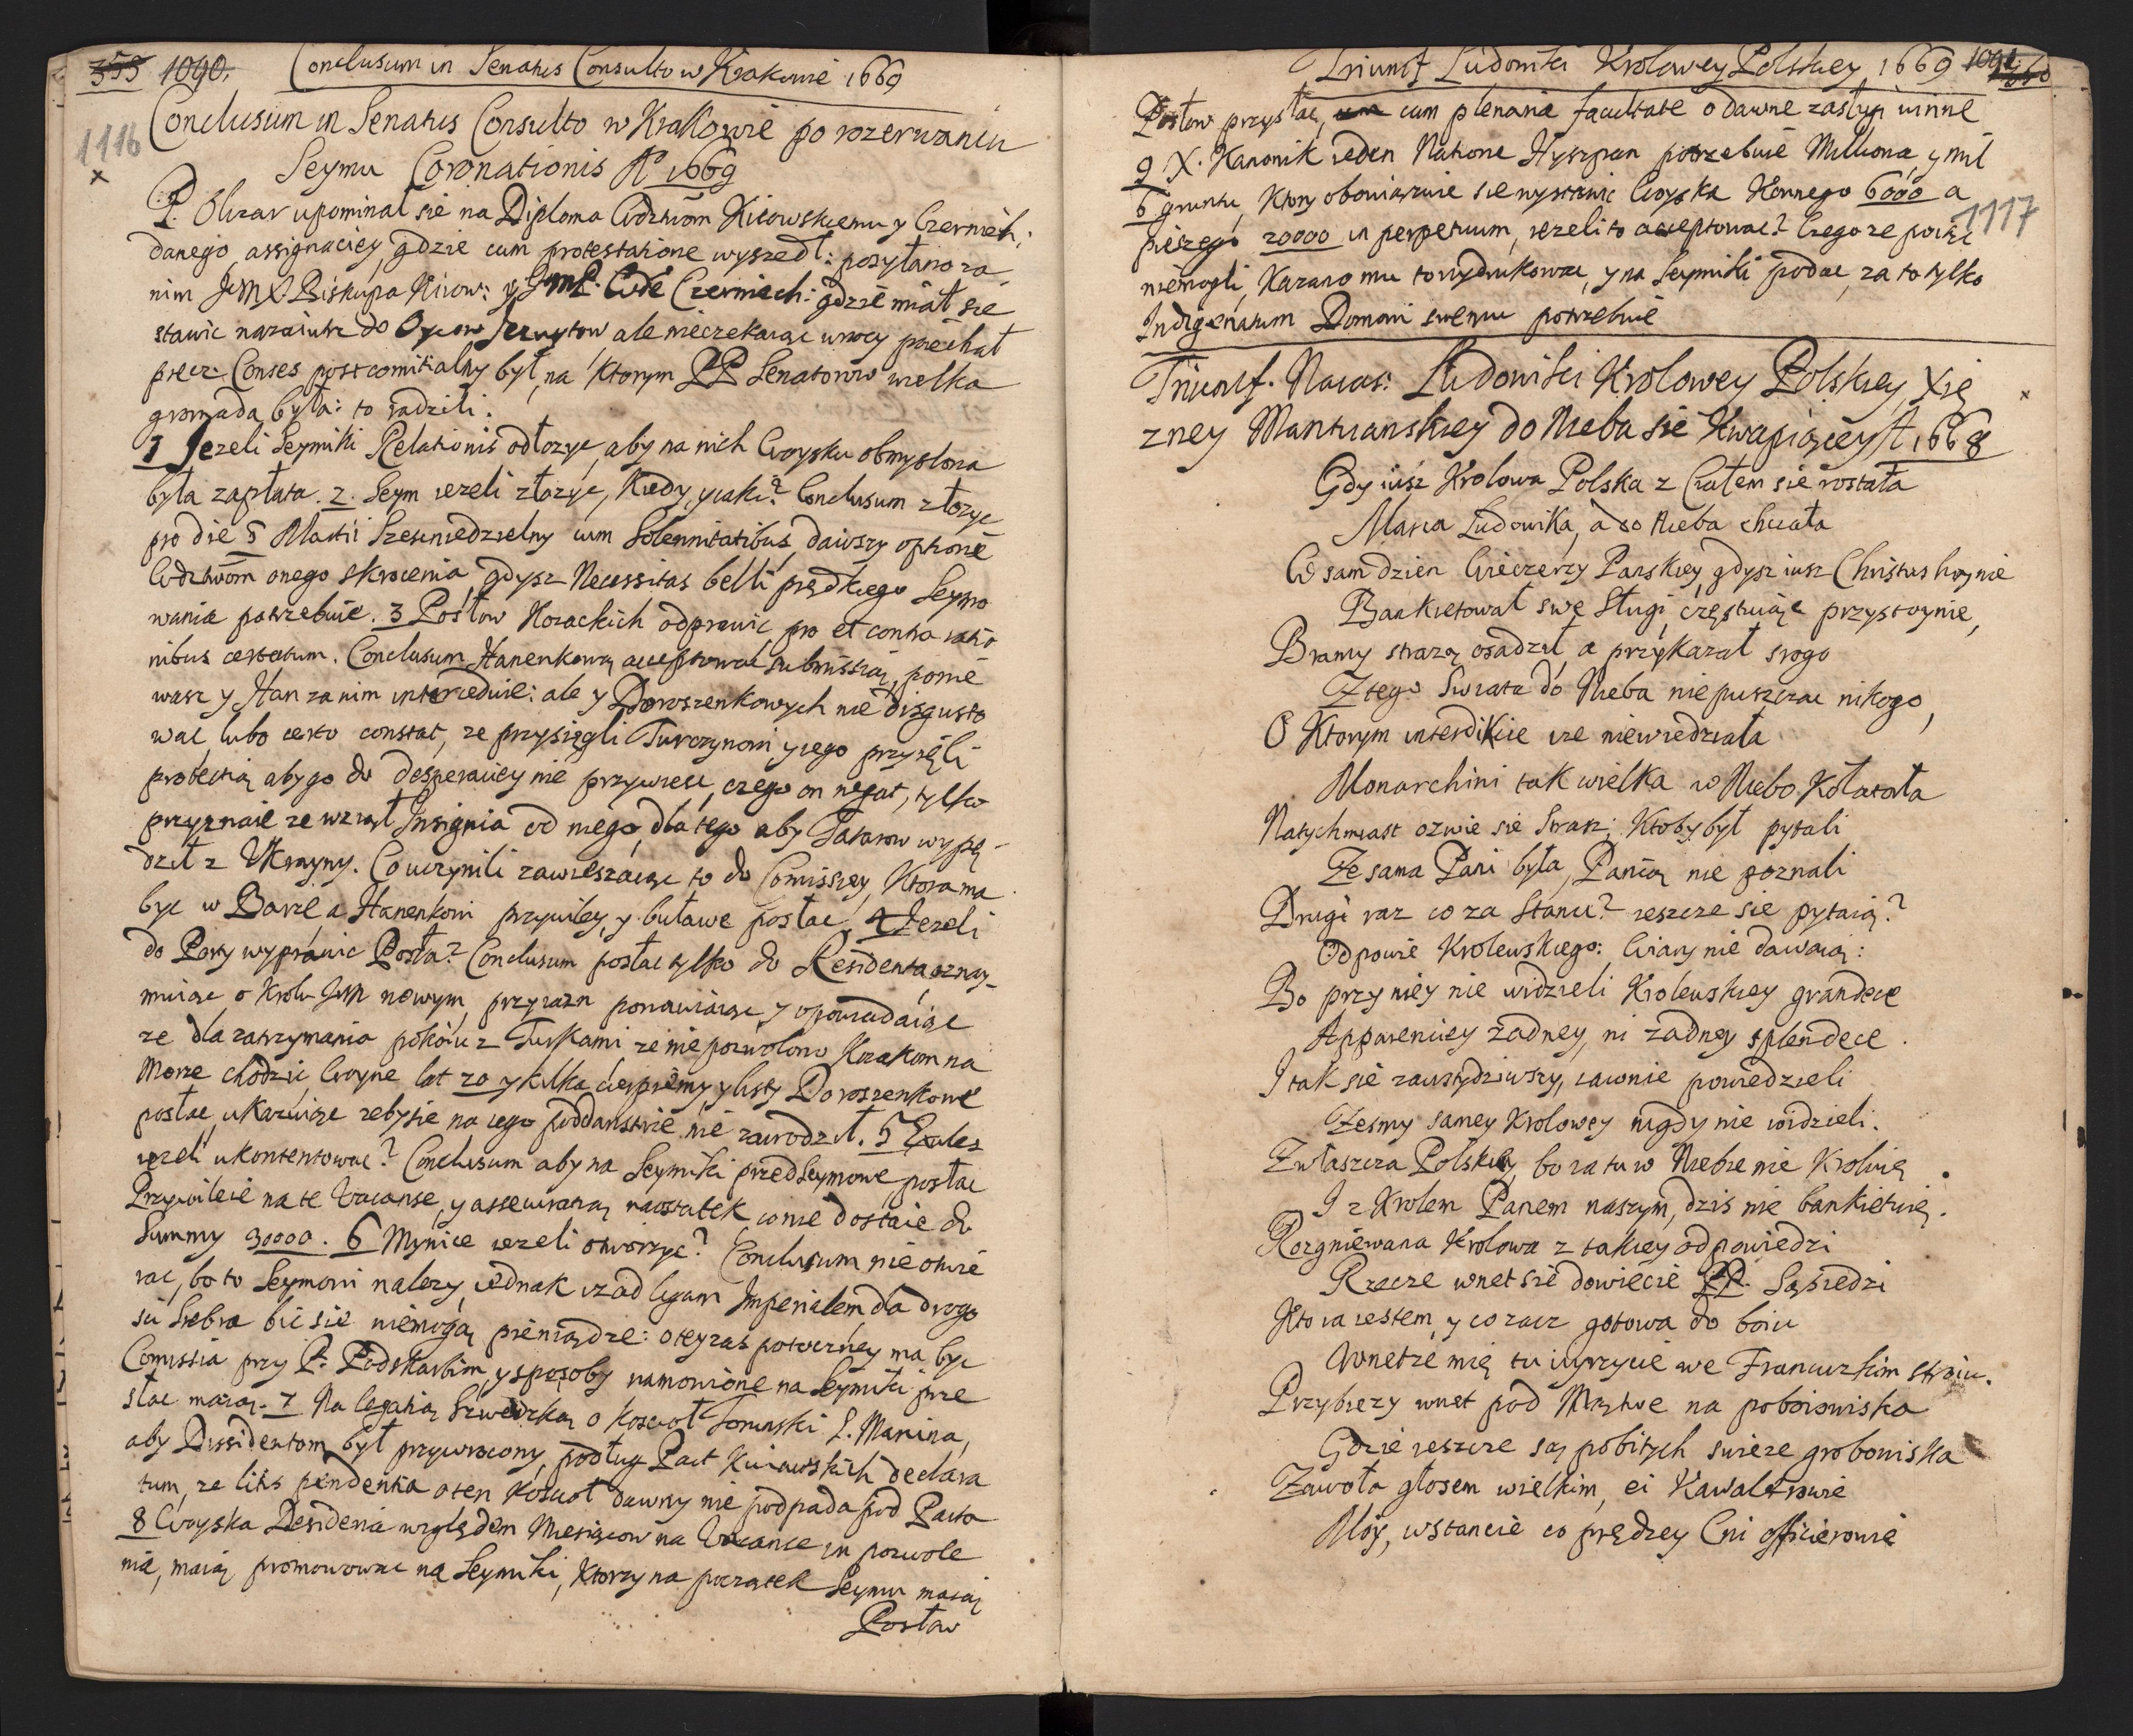 355 1090. Conclusum in Senatus Consulto w Krakowie 1669
1116
Conclusum in Senatus Consulto w Krakowie po rozerwaniu
Seymu Coronationis A 1669
P. Olizar upominał sie na Diploma Wdztwom Kiiowskiemu y Czernieh:
danego assignaciey, gdzie cum protestatione wyszedł: posyłano za
nim JeMX Biskupa Kiiow: y JeMP. Wde Czerniech: gdzie miał sie
stawic nazaiutrz do Oycow Jezuitow ale nieczekaiąc w nocy poiechał
precz. Conses postcomitialny był, na Ktorym PP Senatorow wielka
gromada była: to radzili.
1 Jezeli Seymiki Relationis odłozyc, aby na nich Woysku obmyslona
była zapłata. 2. Seym iezeli złozyc, Kiedy, y iaki? Conclusum złozyc
pro die 5 Martii Szescniedzielny cum Solennitatibus, dawszy optione
Wdztwom onego skrocenia, gdysz Necessitas belli prędkiego Seymo
wania potrzebuie. 3 Posłow Kozackich odprawic pro et contra ratio
nibus certatum. Conclusum Hanenkową acceptowac submissią, ponie
wasz y Han za nim intercednie: ale y Doroszenkowych nie disgusto
wac, lubo certo constat, ze przysięgli Turczynowi y iego przyięli
protectią aby go do desperaciey nie przywiesc, czego on negat, tylko
przyznaie ze wziął Insignia od niego, dla tego aby Tatarow wypę-
dził z Ukrayny. Co uczynili zawieszaiąc to do Comissiey, Ktora ma
byc w Barze, a Hanenkowi przywiley, y buławe posłac. 4 Jezeli
do Porty wyprawic Posła? Conclusum posłac tylko do Residenta oznay-
muiąc o Krolu Jmsci nowym, przyiazn ponawiaiąc, y opowiadaiąc
ze dla zatrzymania pokoiu z Turkami ze nie pozwolono Kozakom na
Morze chodzic Woyne lat 20 y kilka cierpiemy, y listy Doroszenkowe
posłac, ukazuiąc zeby sie na iego poddanstwie nie zawodził. 5 Exules
iezeli ukontentowac? Conclusum aby na Seymiki przedSeymowe posłac
Przywileie na te Vacanse, y assecuratią naostatek co nie dostaie do
Summy 30000. 6 Mynice iezeli otworzyc? Conclusum nie otwie
rac, bo to Seymowi nalezy, iednak iz ad legam Imperialem, dla drogo
sci Srebra bic sie niemogą pieniądze: oteyzas potoczney ma byc
Comissia przy P. Podskarbim, y sposoby namowione na Seymiki prze
słac maią. 7 Na legatią Szwedzką o Koscioł Torunski S. Marina,
aby Dissidentom był przywrocony, podług Pact Kuiawskich declara
tum, ze litis pendentia o ten Koscioł dawny nie podpada pod Pacta
8 Woyska Desideria względem Miesięcow na Vacance in pozwole
nie, maią promowowac na Seymiki, Ktorzy na początek Seymu maią
Posłow
Triumf Ludowiki Krolowey Polskiey 1669 1091
1117
Posłow przysłac, cum plenaria facultate o dawne zasługi winne
9 X. Kanonik ieden Natione Hyszpan potrzebuie Milliona, y mil
6 gruntu, Ktory obowiązuie sie wystawic Woyska Konnego 6000 a
pieszego 20000 in perpetuum, iezeli to acceptowac? Czego ze poiąc
niemogli, Kazano mu to wydrukowac, y na Seymiki podac, za to tylko
Indigenatum Domowi swemu potrzebuie
Triumf. Naias: Ludowiki Krolowey Polskiey, Xię
zney Mantuanskiey do Nieba sie Kwapiącey A 1668
Gdy iusz Krolowa Polska z Ciałem sie rostała
Maria Ludowika, a do Nieba chciała
W sam dzien Wieczerzy Panskiey, gdysz iusz Christus hoynie
Bankietował swe Sługi, częstuiąc przystoynie,
Bramy strazą osadził, a przykazał srogo
Z tego Swiata do Nieba nie puszczac nikogo,
O Ktorym interdikcie ize niewiedziała
Monarchini tak wielka w Niebo Kołatała
Natychmiast ozwie sie Straz; Ktoby był pytali
Ze sama Pani była, Panią nie poznali
Drugi raz co za Stanu? ieszcze sie pytaią?
Odpowie Krolewskiego: Wiary nie dawaią:
Bo przy niey nie widzieli Krolewskiey grandece
Apparenciey zadney, ni zadney splendece.
I tak sie zawstydziwszy, iawnie powiedzieli
Zesmy samey Krolowey nigdy nie widzieli.
Zwłaszcza Polskiey, bo ia tu w Niebie nie Kroluię
I z Krolem Panem naszym, dzis nie bankietuię.
Rozgniewana Krolowa z takiey odpowiedzi
Rzecze wnet sie dowiecie PP. Sąsiedzi
Kto ia iestem, y coraz gotowa do boiu
Wnetze mię tu uyrzycie we Francuzkim stroiu.
Przybiezy wnet pod Mątwe na poboiowiska
Gdzie ieszcze są pobitych swieze grobowiska
Zawoła głosem wielkim, ei Kawalerowie
Moy, wstancie co prędzey Cni officierowie